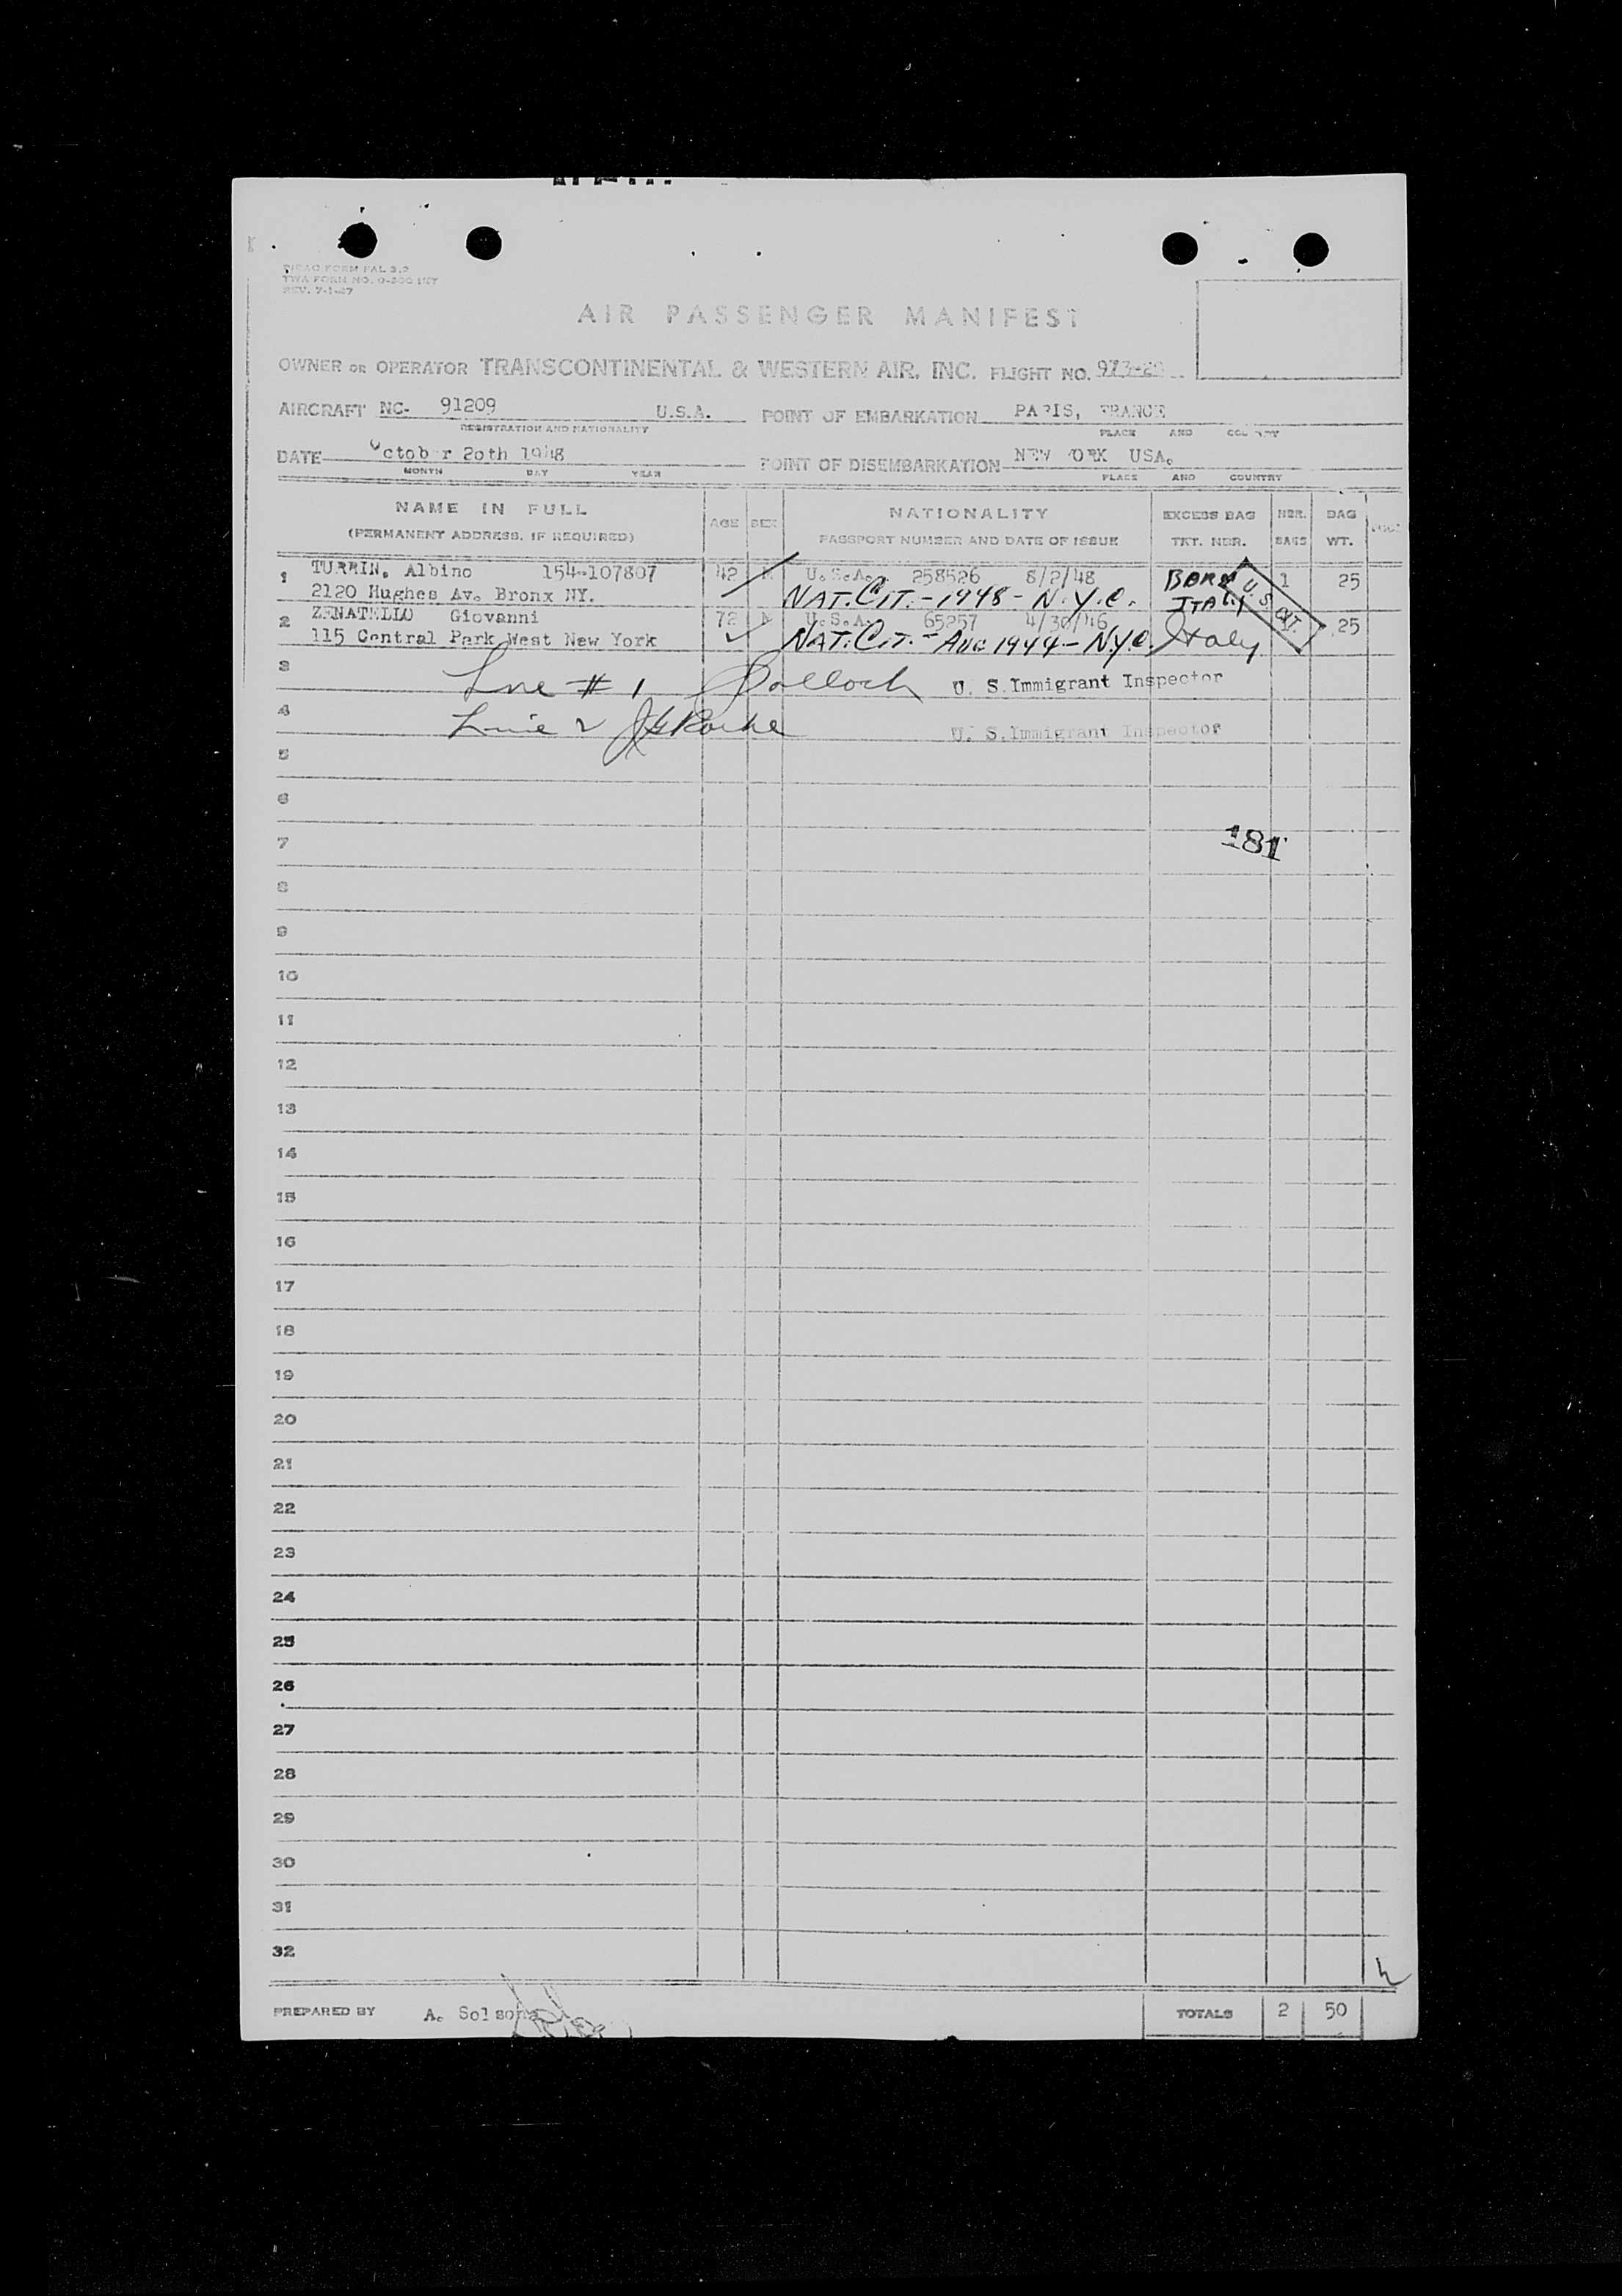 PICAO FORM FAL 3.2
TWA FORM NO. 0-200 INT
REV. 7-1-47
AIR PASSENGER MANIFEST
OWNER OR OPERATOR TRANSCONTINENTAL & WESTERN AIR, INC. FLIGHT NO. 973-20
AIRCRAFT NC- 91209 U.S.A. POINT OF EMBARKATION PARIS, FRANCE
REGISTRATION AND NATIONALITY PLACE AND COUNTRY
DATE October 20th 1948 POINT OF DISEMBARKATION NEW YORK USA.
MONTH DAY YEAR PLACE AND COUNTRY
NAME IN FULL AGE SEX NATIONALITY EXCESS BAG NBR. BAG
(PERMANENT ADDRESS, IF REQUIRED) PASSPORT NUMBER AND DATE OF ISSUE TKT. NBR. BAGS WT.
1 TURRIN, Albino 154-107807 42 M U.S.A. 258526 8/2/48 BORN 1 25
2120 Hughes Av. Bronx NY. NAT. CIT. - 1948 - N.Y.C. ITALY U.S. CIT.
2 ZENATELLO Giovanni 72 M U.S.A. 65257 4/30/46 1 25
115 Central Park West New York NAT. CIT. - AUG 1944 - N.Y.C. Italy
3 Line # 1 Polloch U. S. Immigrant Inspector
4 Line 2 U. S. Immigrant Inspector
5
6
7 181
8
9
10
11
12
13
14
15
16
17
18
19
20
21
22
23
24
25
26
27
28
29
30
31
32
PREPARED BY A. Solsona TOTALS 2 50